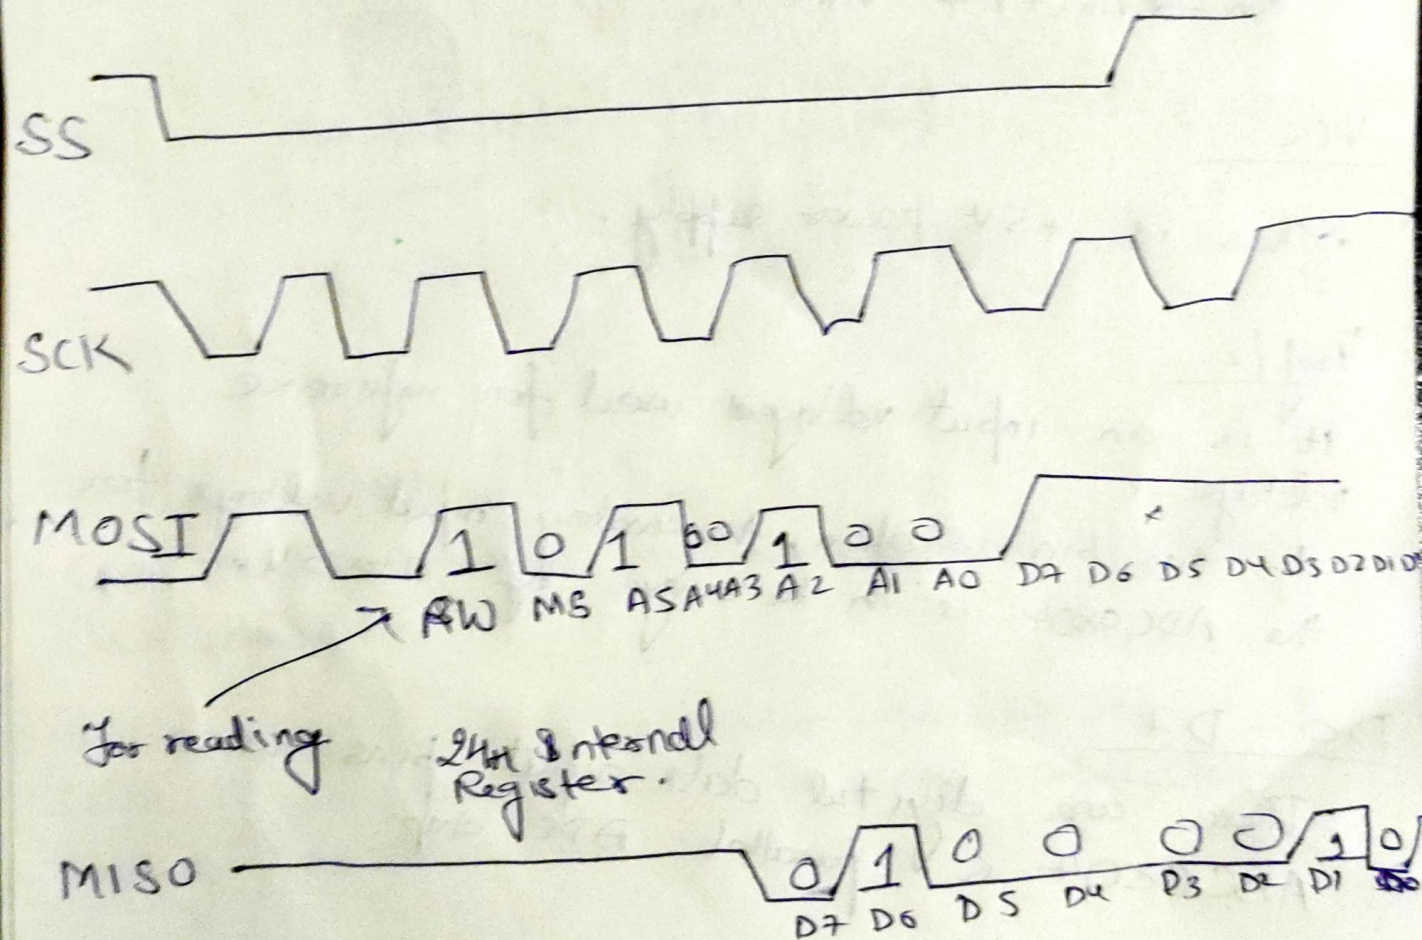 SS
SCK
MOSI 1 0 1 0 0 1 0 0
RW MS A5 A4 A3 A2 A1 A0 D7 D6 D5 D4 D3 D2 D1
For reading 24H Internal
Register.
MISO 0 1 0 0 0 0 1 0
D7 D6 D5 D4 D3 D2 D1